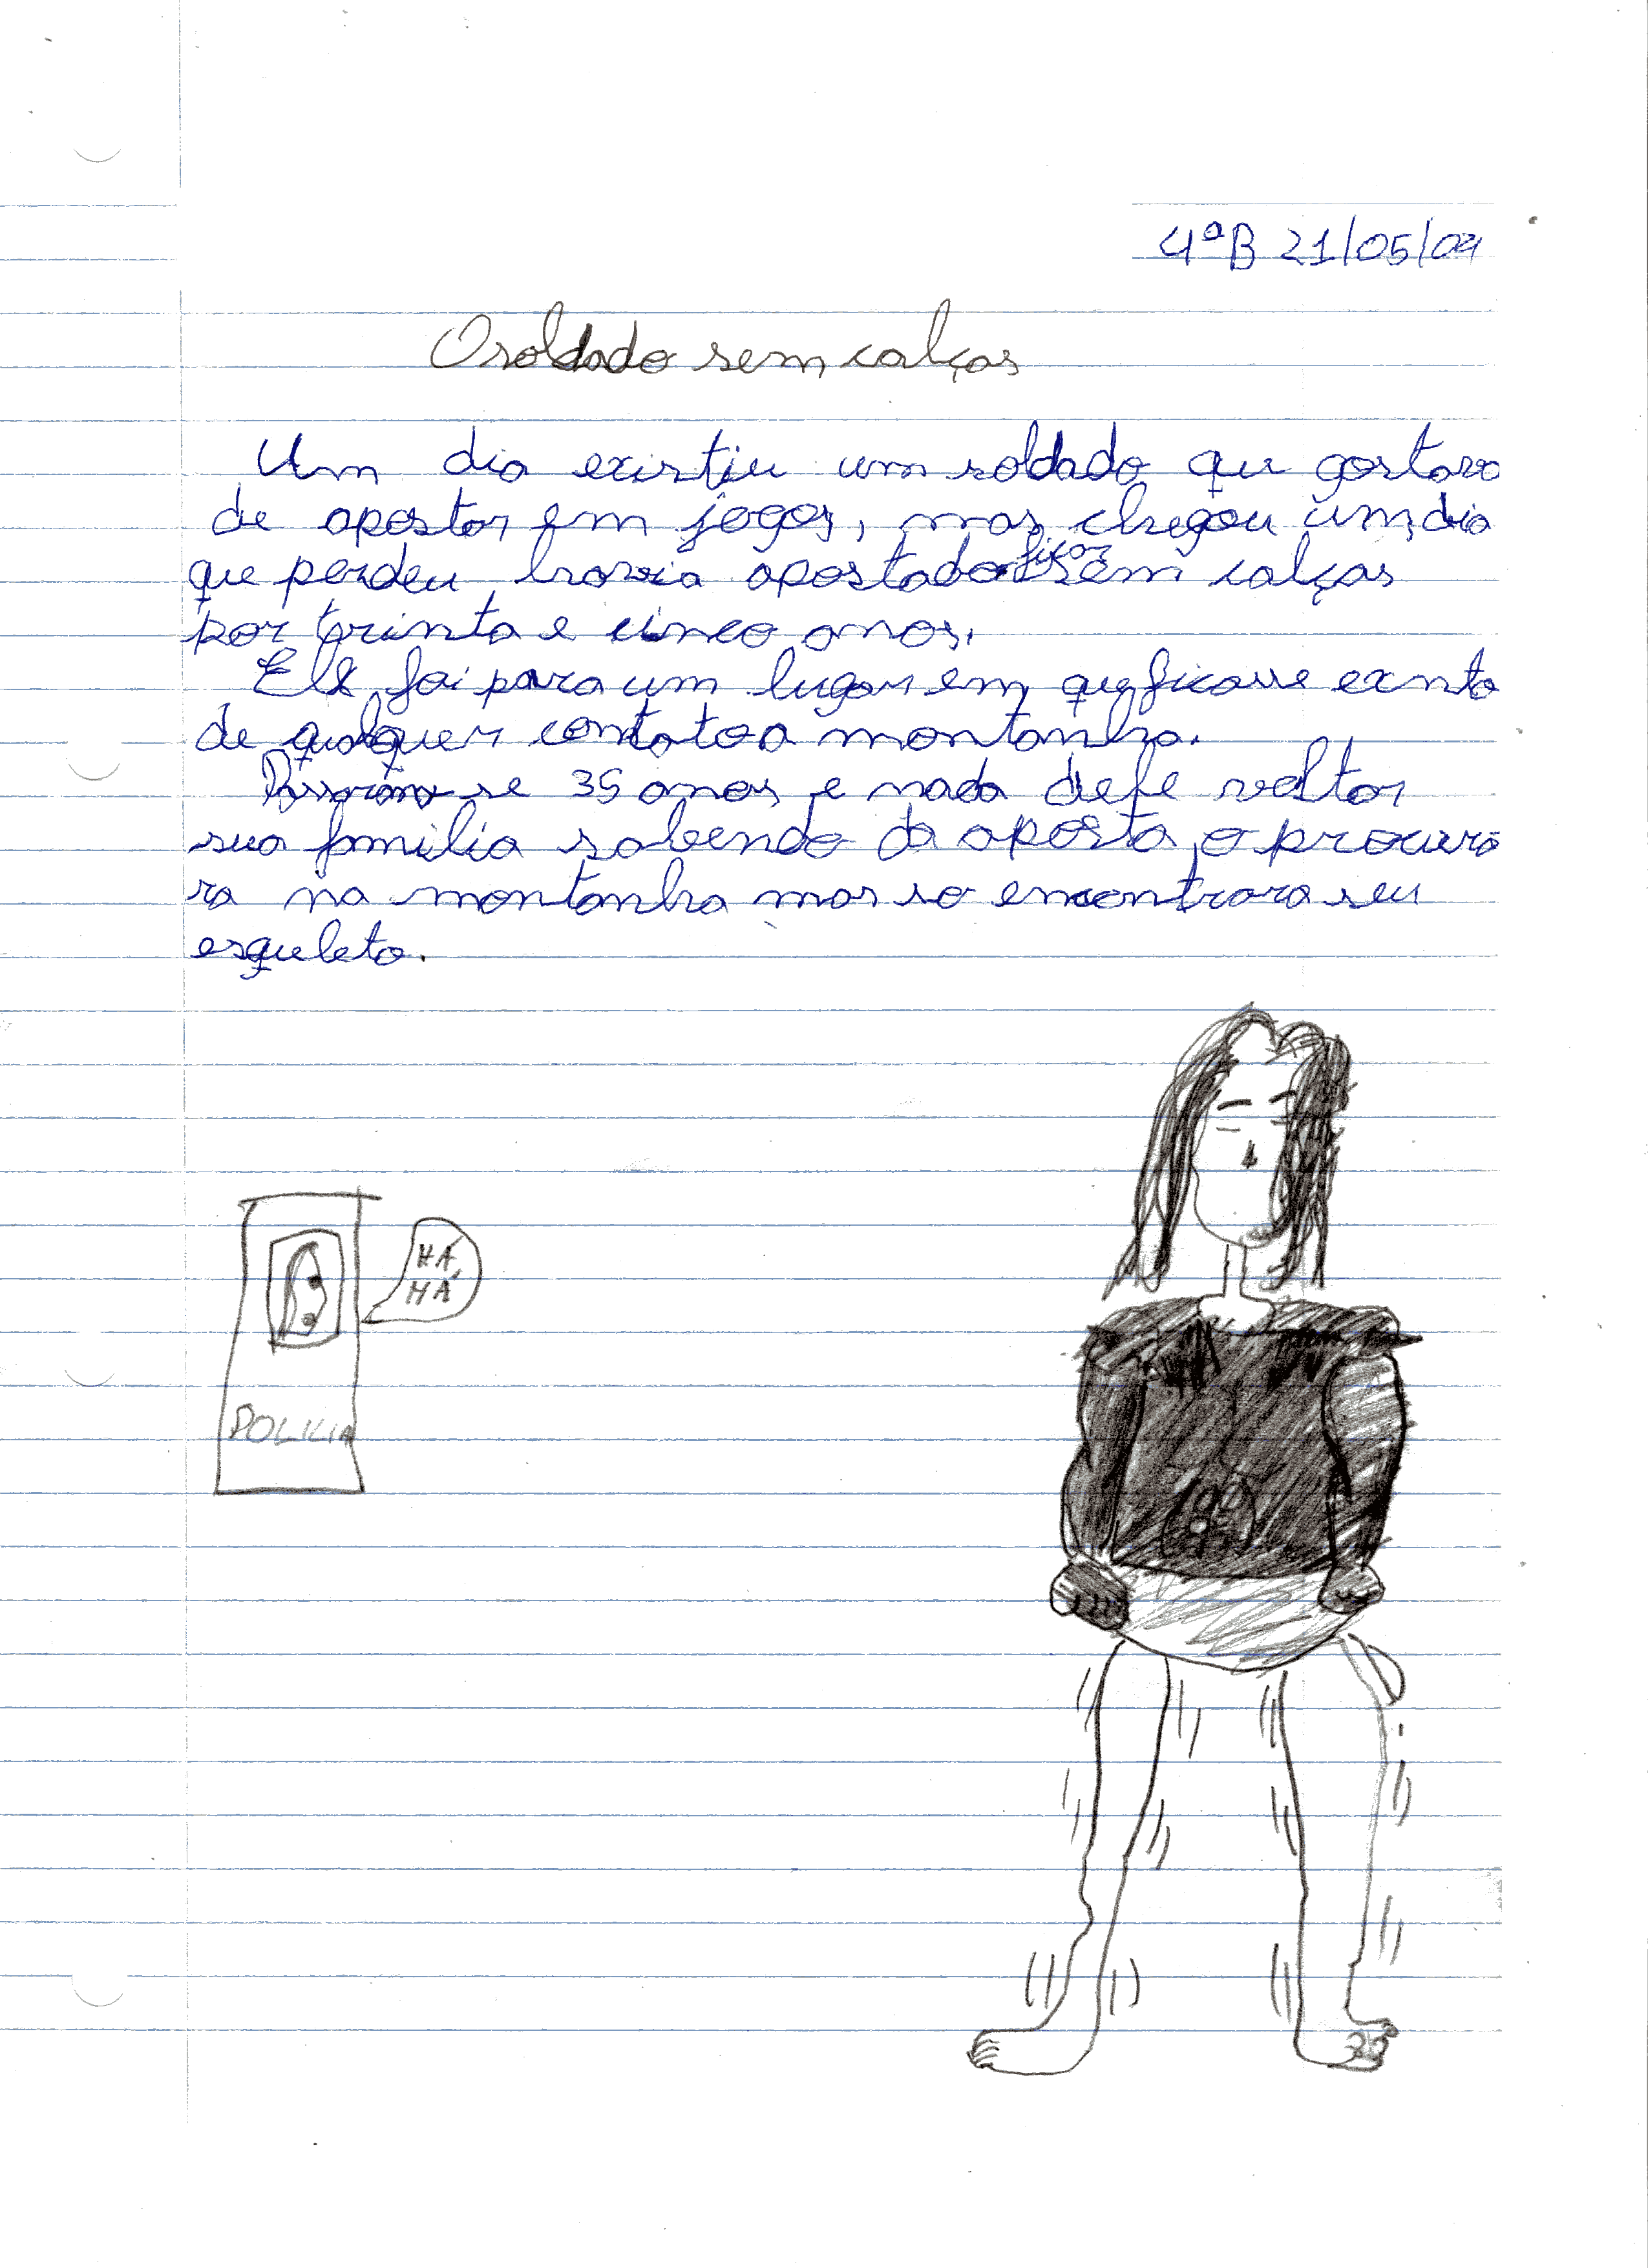 4ªB 21/05/04
O soldado sem calças
Um dia existiu um soldado que gostava
de apostar em jogos, mas chegou um dia
que perdeu havia apostado ficar sem calças
por trinta e cinco anos.
Ele foi para um lugar em que ficasse exnto
de qualquer contato a montanha.
se 35 anos e nada dele voltar
sua familia sabendo da aposta o procura
ra na montanha mas so encontrara seu
esqueleto.
HÁ,
HÁ
POLICIA